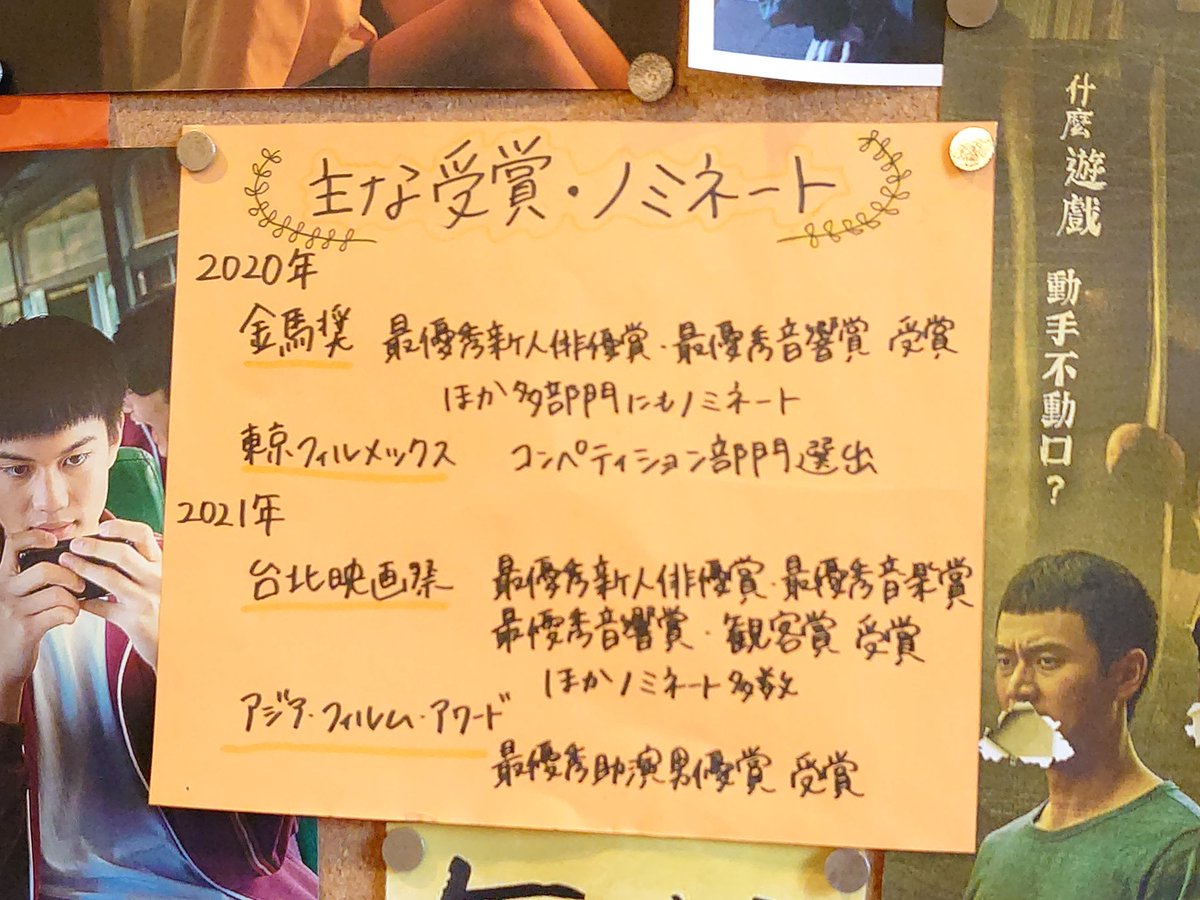 主な受賞・ノミネート
2020年
金馬奨 最優秀新人俳優賞・最優秀音響賞 受賞
ほか多部門にもノミネート
東京フィルメックス コンペティション部門選出
2021年
台北映画祭 最優秀新人俳優賞・最優秀音楽賞
最優秀音響賞・観客賞 受賞
ほかノミネート多数
アジア・フィルム・アワード
最優秀助演男優賞 受賞
什麼遊戲 動手不動口?